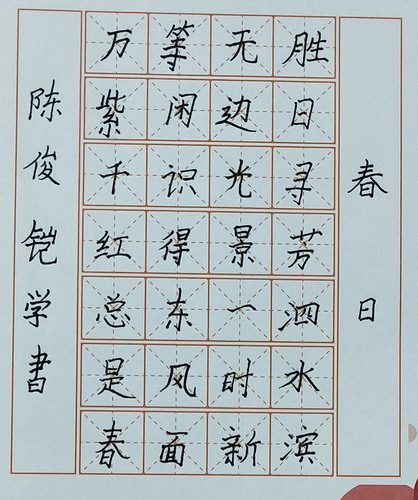 春日
胜日寻芳泗水滨
无边光景一时新
等闲识得东风面
万紫千红总是春
陈俊铠学书